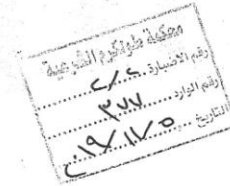 محكمة طولكرم الشرعية
رقم الأضبارة ............ ٢/٤
رقم الوارد ............ ٣٧٧
التاريخ ............ ٢٠١٩/١١/٥